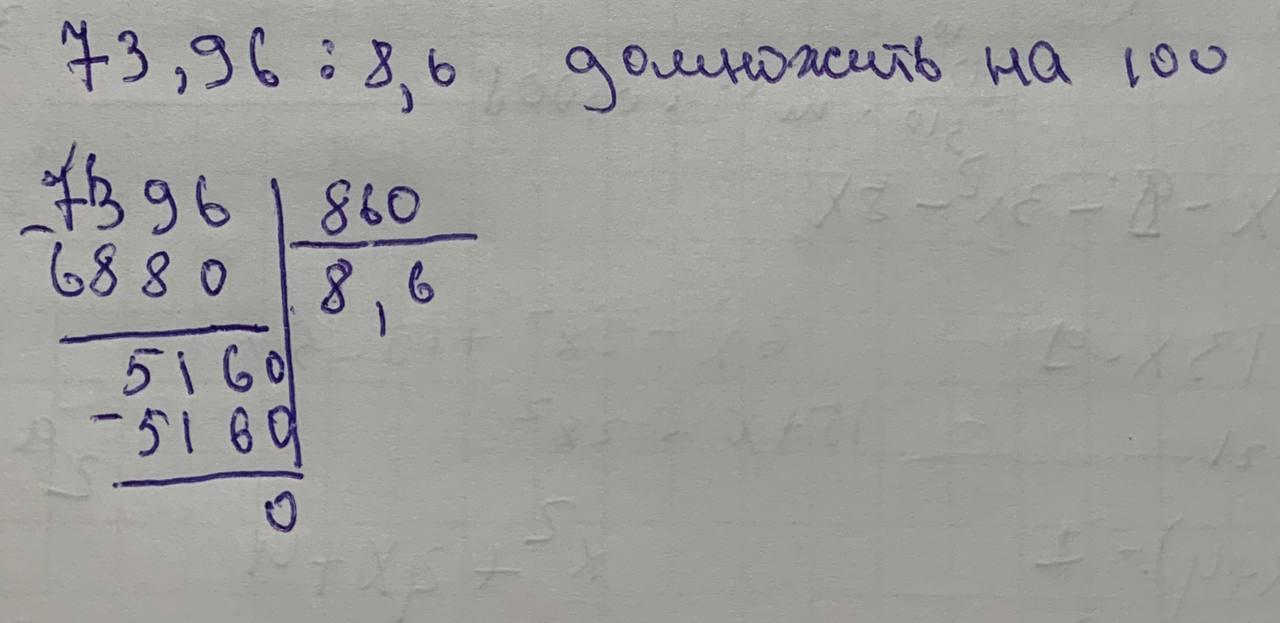 73,96 : 8,6 домножить на 100
7396 | 860
- 6880 | 8,6
5160
- 5160
0